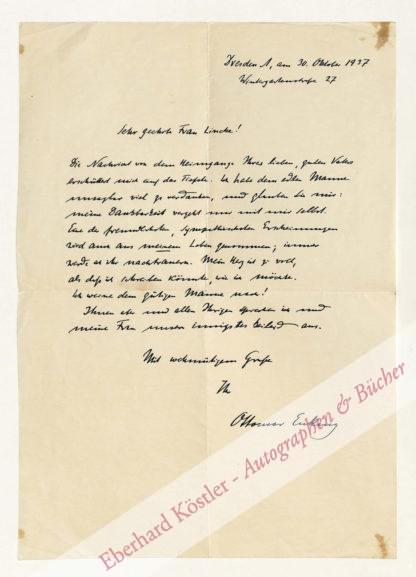 Dresden A, am 30. Oktober 1937
Wintergartenstraße 27
Sehr geehrte Frau Lincke!
Die Nachricht von dem Heimgange Ihres lieben, guten Vaters
erschüttert mich auf das Tiefste. Ich habe dem edlen Manne
unsagbar viel zu verdanken, und glauben Sie mir:
meine Dankbarkeit vergeht nur mit mir selbst.
Eine der freundlichsten, sympathischsten Erscheinungen
wird aus meinem Leben genommen; immer
werde ich ihr nachtrauern. Mein Herz ist zu voll,
als daß ich schreiben könnte, wie ich möchte.
Ich weine dem gütigen Manne nach!
Ihnen und allen Ihrigen sprechen ich und
meine Frau unser innigstes Beileid aus.
Mit wehmütigem Gruße
Ihr
Ottomar Enking
Eberhard Köstler - Autographen & Bücher